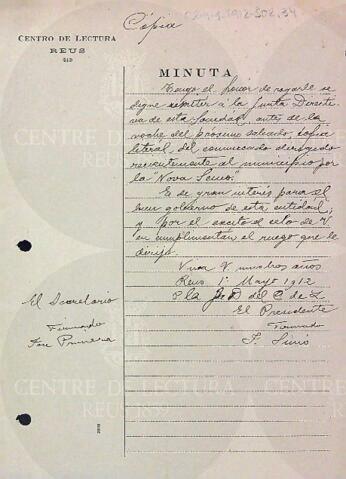 Cópia
CENTRO DE LECTURA
REUS
MINUTA
Tengo el honor de rogarle se
digne remitir á la Junta Directi-
va de esta Sociedad, antes de la
noche del próximo sábado, copia
literal, del comunicado
recientemente al municipio por
la "Nova Senus".
Es de gran interés para el
buen gobierno de esta entidad,
y por el exacto celo de V
en cumplimentar el ruego que le
dirijo.
Viva V muchos años
Reus 1º Mayo 1912
P. la J. D del C de L
El Presidente
Firmado
El Secretario
Firmado
CENTRE DE LECTURA
REUS 1859